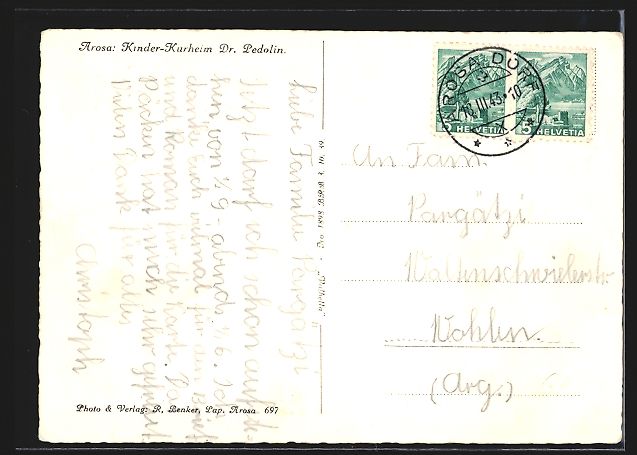 Arosa: Kinder-Kurheim Dr. Pedolin.
Liebe Familie Pargätzi
Jetzt darf ich schon aufste-
hen von ½ 9. abends ½ 6. Ich
danke Euch vielmal für den Brief
und Roman für die Karte. Das
Päcken hat mich sehr gefreut
Vielen Dank für alles
Christoph
Photo & Verlag: R. Benker, Pap. Arosa 697
AROSA DORF
III.43
HELVETIA
5 HELVETIA
An Fam.
Pargätzi
Wohlen.
(Arg.)